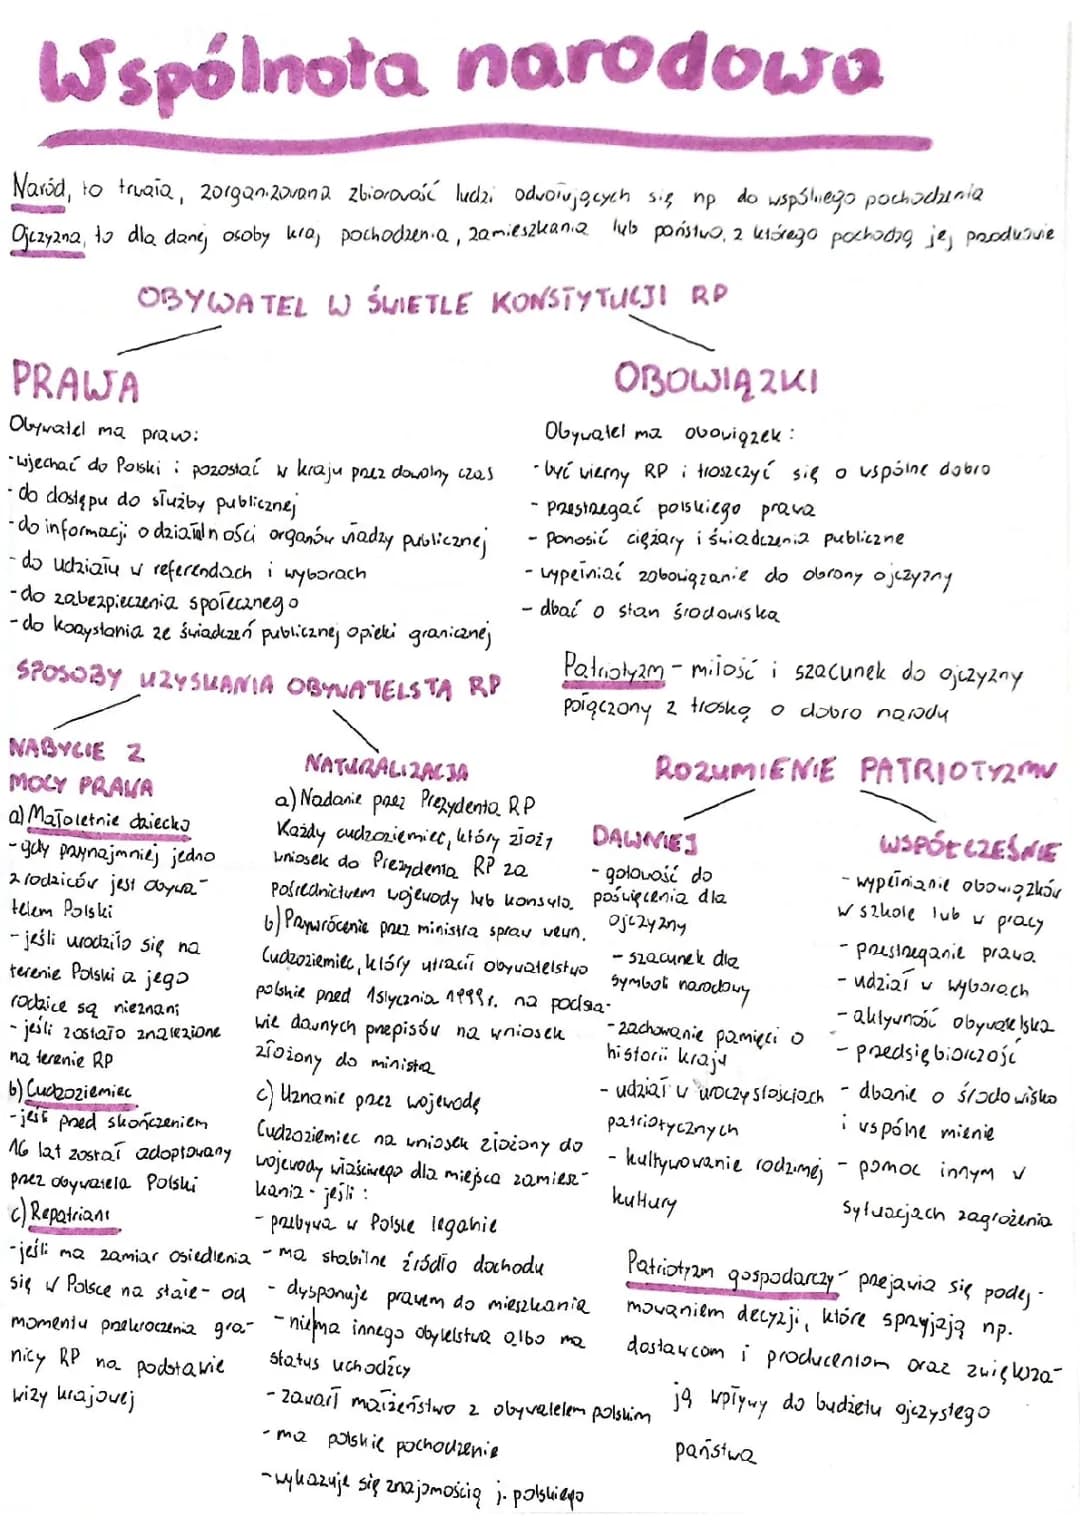 Wspólnota narodowa
Naród, to trwała, zorganizowana zbiorowość ludzi odwołujących się np do wspólnego pochodzenia
Ojczyzna, to dla danej osoby kraj pochodzenia, zamieszkania lub państwo, z którego pochodzą jej przodkowie
OBYWATEL W ŚWIETLE KONSTYTUCJI RP
PRAWA
Obywatel ma prawo:
- wjechać do Polski i pozostać w kraju przez dowolny czas
- do dostępu do służby publicznej
- do informacji o działalności organów władzy publicznej
- do udziału w referendach i wyborach
- do zabezpieczenia społecznego
- do korzystania ze świadczeń publicznej opieki granicznej
OBOWIĄZKI
Obywatel ma obowiązek:
- być wierny RP i troszczyć się o wspólne dobro
- przestrzegać polskiego prawa
- ponosić ciężary i świadczenia publiczne
- wypełniać zobowiązanie do obrony ojczyzny
- dbać o stan środowiska
Patriotyzm - miłość i szacunek do ojczyzny
połączony z troską o dobro narodu
SPOSOBY UZYSKANIA OBYWATELSTA RP
NABYCIE Z
MOCY PRAWA
a) Małoletnie dziecko
- gdy przynajmniej jedno
z rodziców jest obywa-
telem Polski
- jeśli urodziło się na
terenie Polski a jego
rodzice są nieznani
- jeśli zostało znalezione
na terenie RP
b) Cudzoziemiec
- jeśli przed skończeniem
16 lat został adoptowany
przez obywatela Polski
c) Repatriant
- jeśli ma zamiar osiedlenia
się w Polsce na stałe - od
momentu przekroczenia gra-
nicy RP na podstawie
wizy krajowej
NATURALIZACJA
a) Nadanie przez Prezydenta RP
Każdy cudzoziemiec, który złoży
wniosek do Prezydenta RP za
pośrednictwem wojewody lub konsula.
b) Przywrócenie przez ministra spraw wewn.
Cudzoziemiec, który utracił obywatelstwo
polskie przed 1 stycznia 1999r. na podsta-
wie dawnych przepisów na wniosek
złożony do ministra
c) Uznanie przez wojewodę
Cudzoziemiec na wniosek złożony do
wojewody właściwego dla miejsca zamiesz-
kania - jeśli:
- przebywa w Polsce legalnie
- ma stabilne źródło dochodu
- dysponuje prawem do mieszkania
- nie ma innego obytelstwa albo ma
status uchodźcy
- zawarł małżeństwo z obywatelem polskim
- ma polskie pochodzenie
- wykazuje się znajomością j. polskiego
ROZUMIENIE PATRIOTYZMU
DAWNIEJ
- gotowość do
poświęcenia dla
ojczyzny
- szacunek dla
symboli narodowy
- zachowanie pamięci o
historii kraju
- udział w uroczystościach
patriotycznych
- kultywowanie rodzimej
kultury
WSPÓŁCZEŚNIE
- wypełnianie obowiązków
w szkole lub w pracy
- przestrzeganie prawa
- udział w wyborach
- aktywność obywatelska
- przedsiębiorczość
- dbanie o środowisko
i wspólne mienie
- pomoc innym w
sytuacjach zagrożenia
Patriotyzm gospodarczy - przejawia się podej-
mowaniem decyzji, które sprzyjają np.
dostawcom i producentom oraz zwiększa-
ją wpływy do budżetu ojczystego
państwa